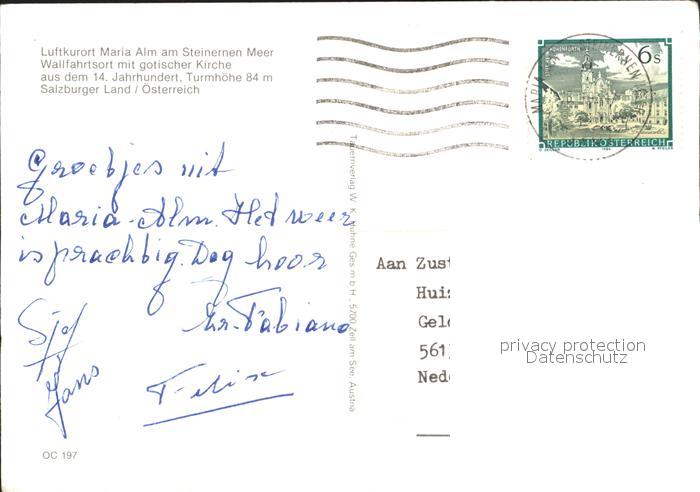 Luftkurort Maria Alm am Steinernen Meer
Wallfahrtsort mit gotischer Kirche
aus dem 14. Jahrhundert, Turmhöhe 84 m
Salzburger Land / Österreich
6 s
REPUBLIK ÖSTERREICH
Groetjes uit
Maria-Alm. Het weer
is prachtig. Dag hoor
Zr. Fabiana
Sjef
Jans
Felix
Aan Zust
Huis
Geld
561
Ned
privacy protection
Datenschutz
Tauernverlag W. K. Kuhne Ges m b H, 5700 Zell am See, Austria
OC 197